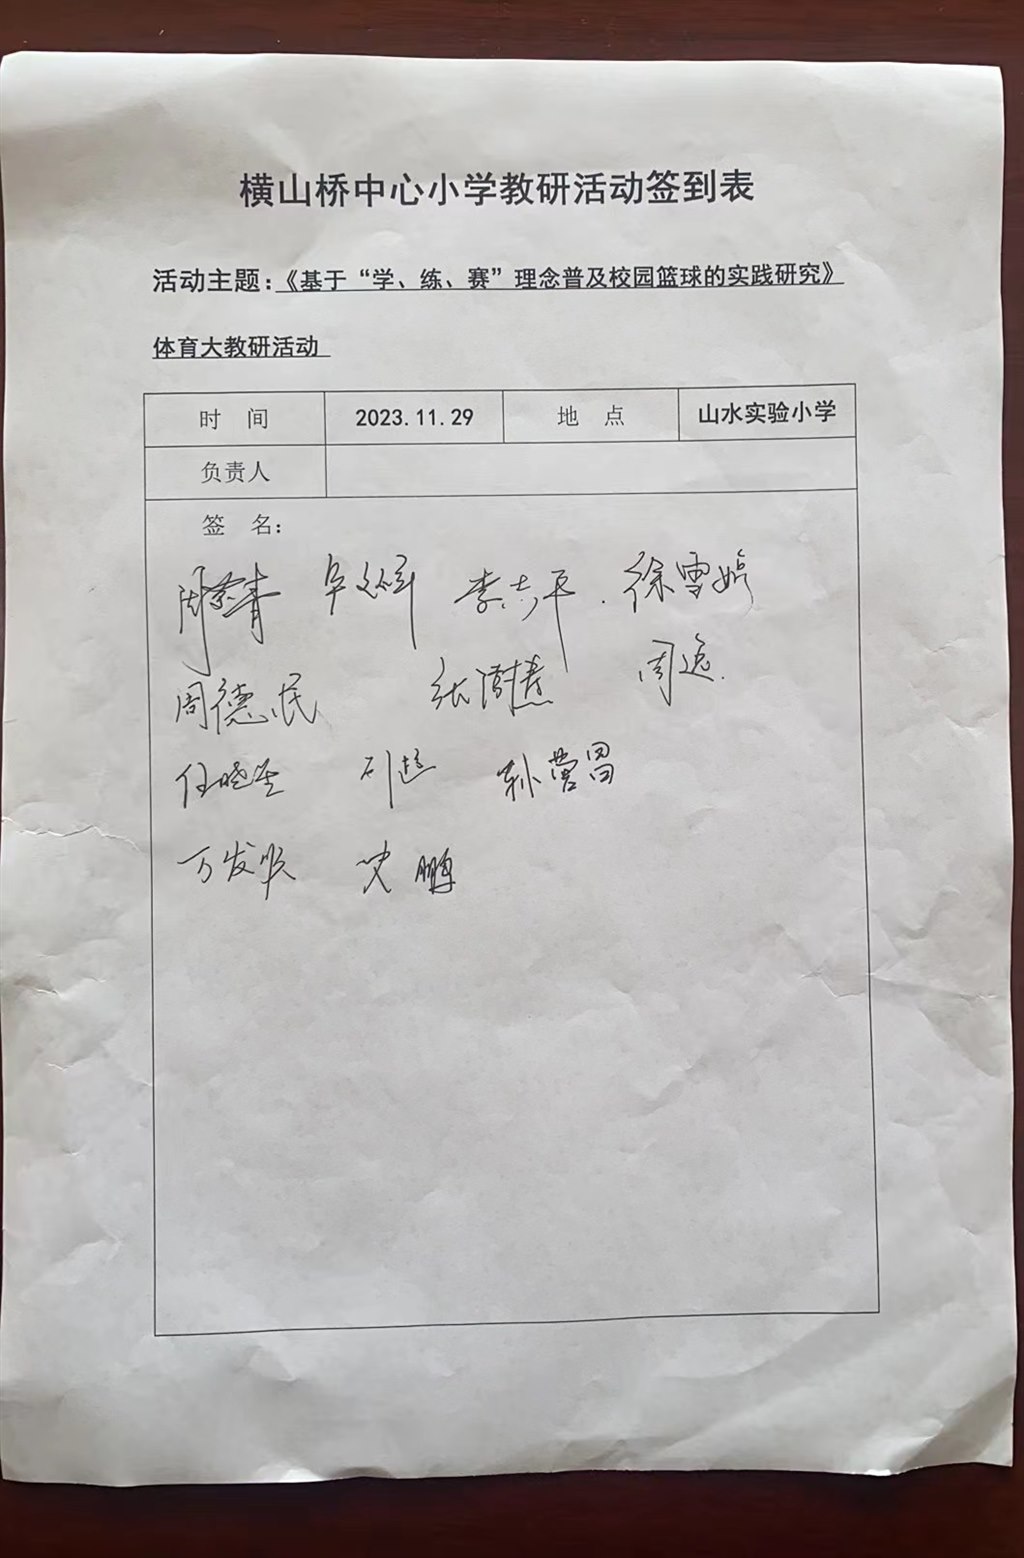 横山桥中心小学教研活动签到表
活动主题：《基于“学、练、赛”理念普及校园篮球的实践研究》
体育大教研活动
时 间 2023.11.29 地 点 山水实验小学
负责人
签 名：
李志平 徐雪婷
周德民 张澍慧 周逸
任晓生 孙营昌
万发 鹏